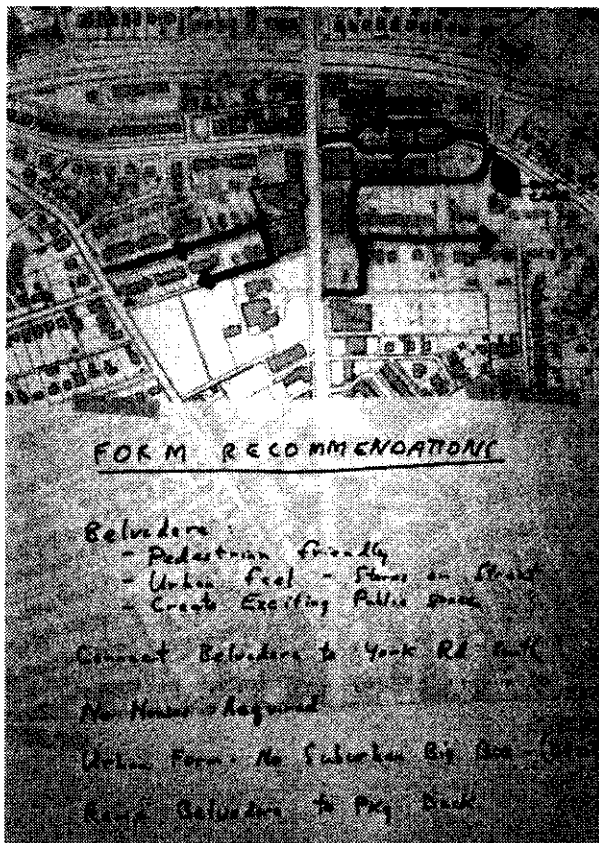 FORM RECOMMENDATIONS
Belvedere:
- Pedestrian friendly
- Urban feel - Stores on Street
- Create Exciting Public space
Connect Belvedere to York Rd
No Required
Urban Form. No Suburban Big Box
Belvedere to Pkg Deck